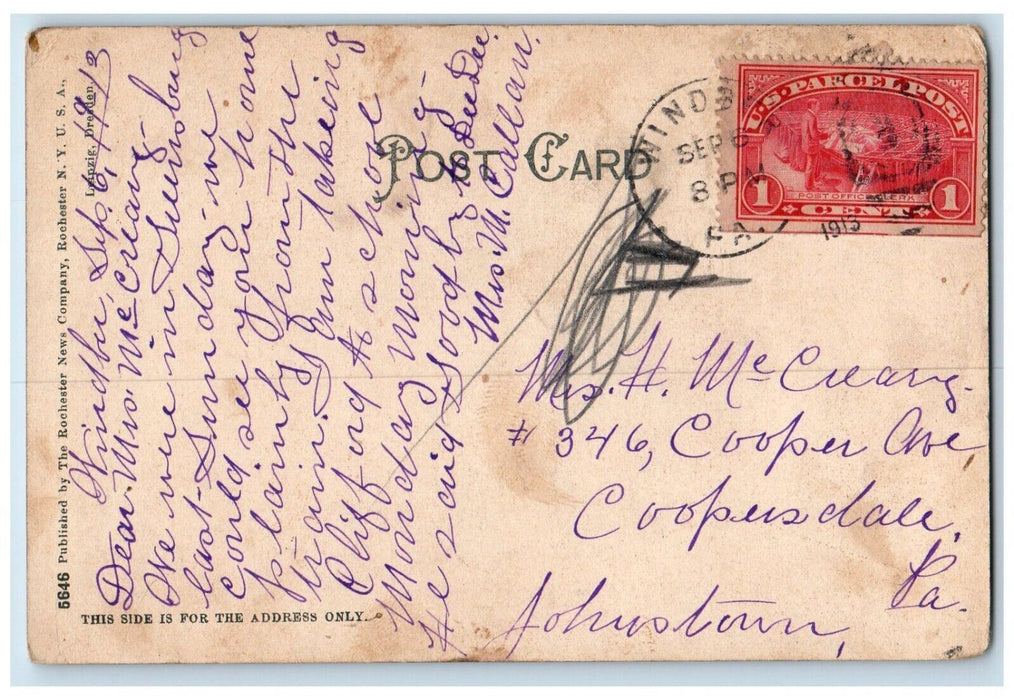 5646 Published by The Rochester News Company, Rochester N. Y. U. S. A.,
Leipzig, Dresden
POST CARD
WINDB
SEP 6
8 PM
PA.
1913
U.S. PARCEL POST
1 CENT 1
POST OFFICE CLERK
Windber, Sep 6, 1913
Dear Mrs. McCreary-
We were in Suensburg
last Sunday we
could see your home
plainly from the
train. I am takeing
Clifford to school
Monday morning
He said good by to DeeDee.
Mrs. M. Callan.
Mrs. H. McCreary.
# 346, Cooper Ave
Coopersdale,
Johnstown, Pa.
THIS SIDE IS FOR THE ADDRESS ONLY.